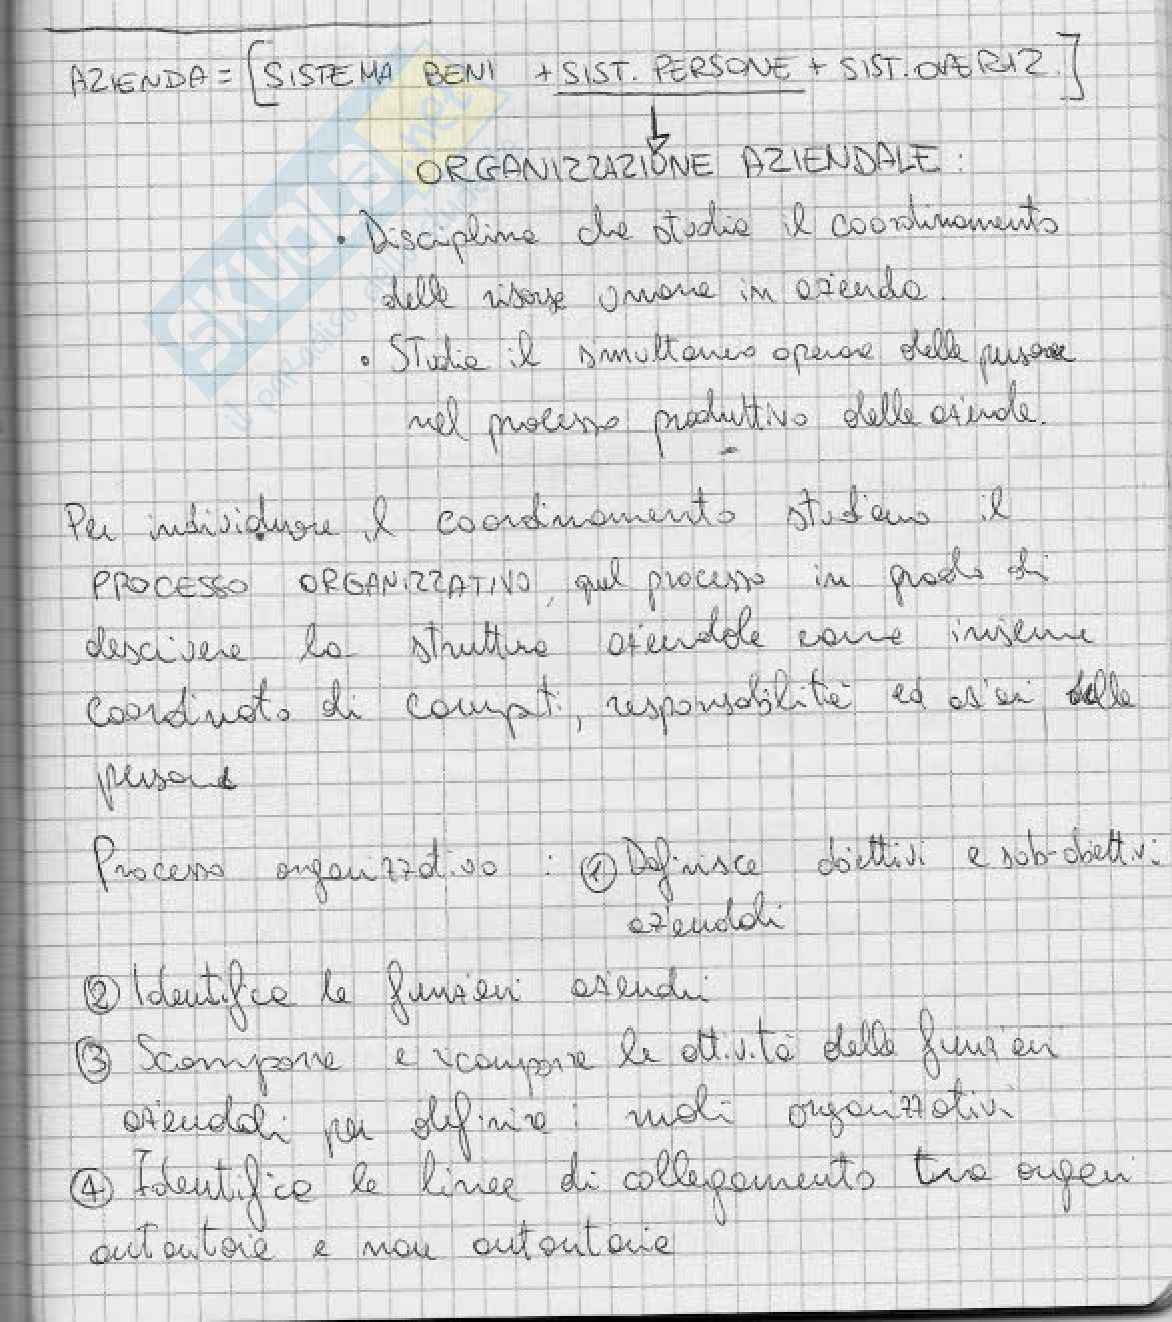 AZIENDA = [SISTEMA BENI + SIST. PERSONE + SIST. OPERAZ.]
ORGANIZZAZIONE AZIENDALE:
• Disciplina che studia il coordinamento
delle risorse umane in azienda.
• Studia il simultaneo operare delle persone
nel processo produttivo delle aziende.
Per individuare il coordinamento studiamo il
PROCESSO ORGANIZZATIVO, quel processo in grado di
descivere la struttura aziendale come insieme
coordinato di compiti, responsabilità ed azioni delle
persone
Processo organizzativo : ① Definisce obiettivi e sob-obiettivi
aziendali
② Identifica le funzioni aziendali
③ Scompone e ricompone le attività delle funzioni
aziendali per definire i ruoli organizzativi
④ Identifica le linee di collegamento tra organi
autoritarie e non autoritarie
SKUOLA.net
il paradiso dello studente